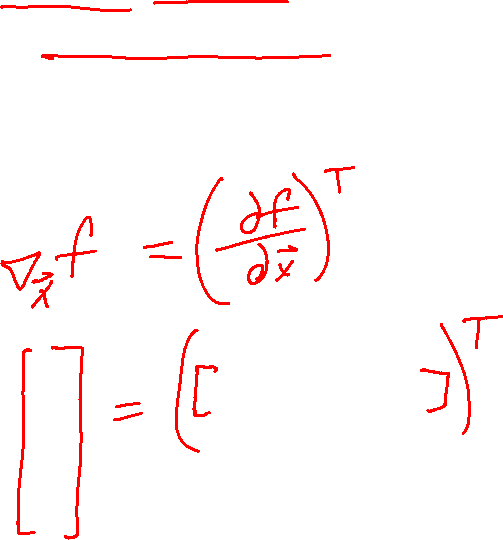 ∇_x⃗ f = (∂f/∂x⃗)^T
[ ] = ([ ])^T